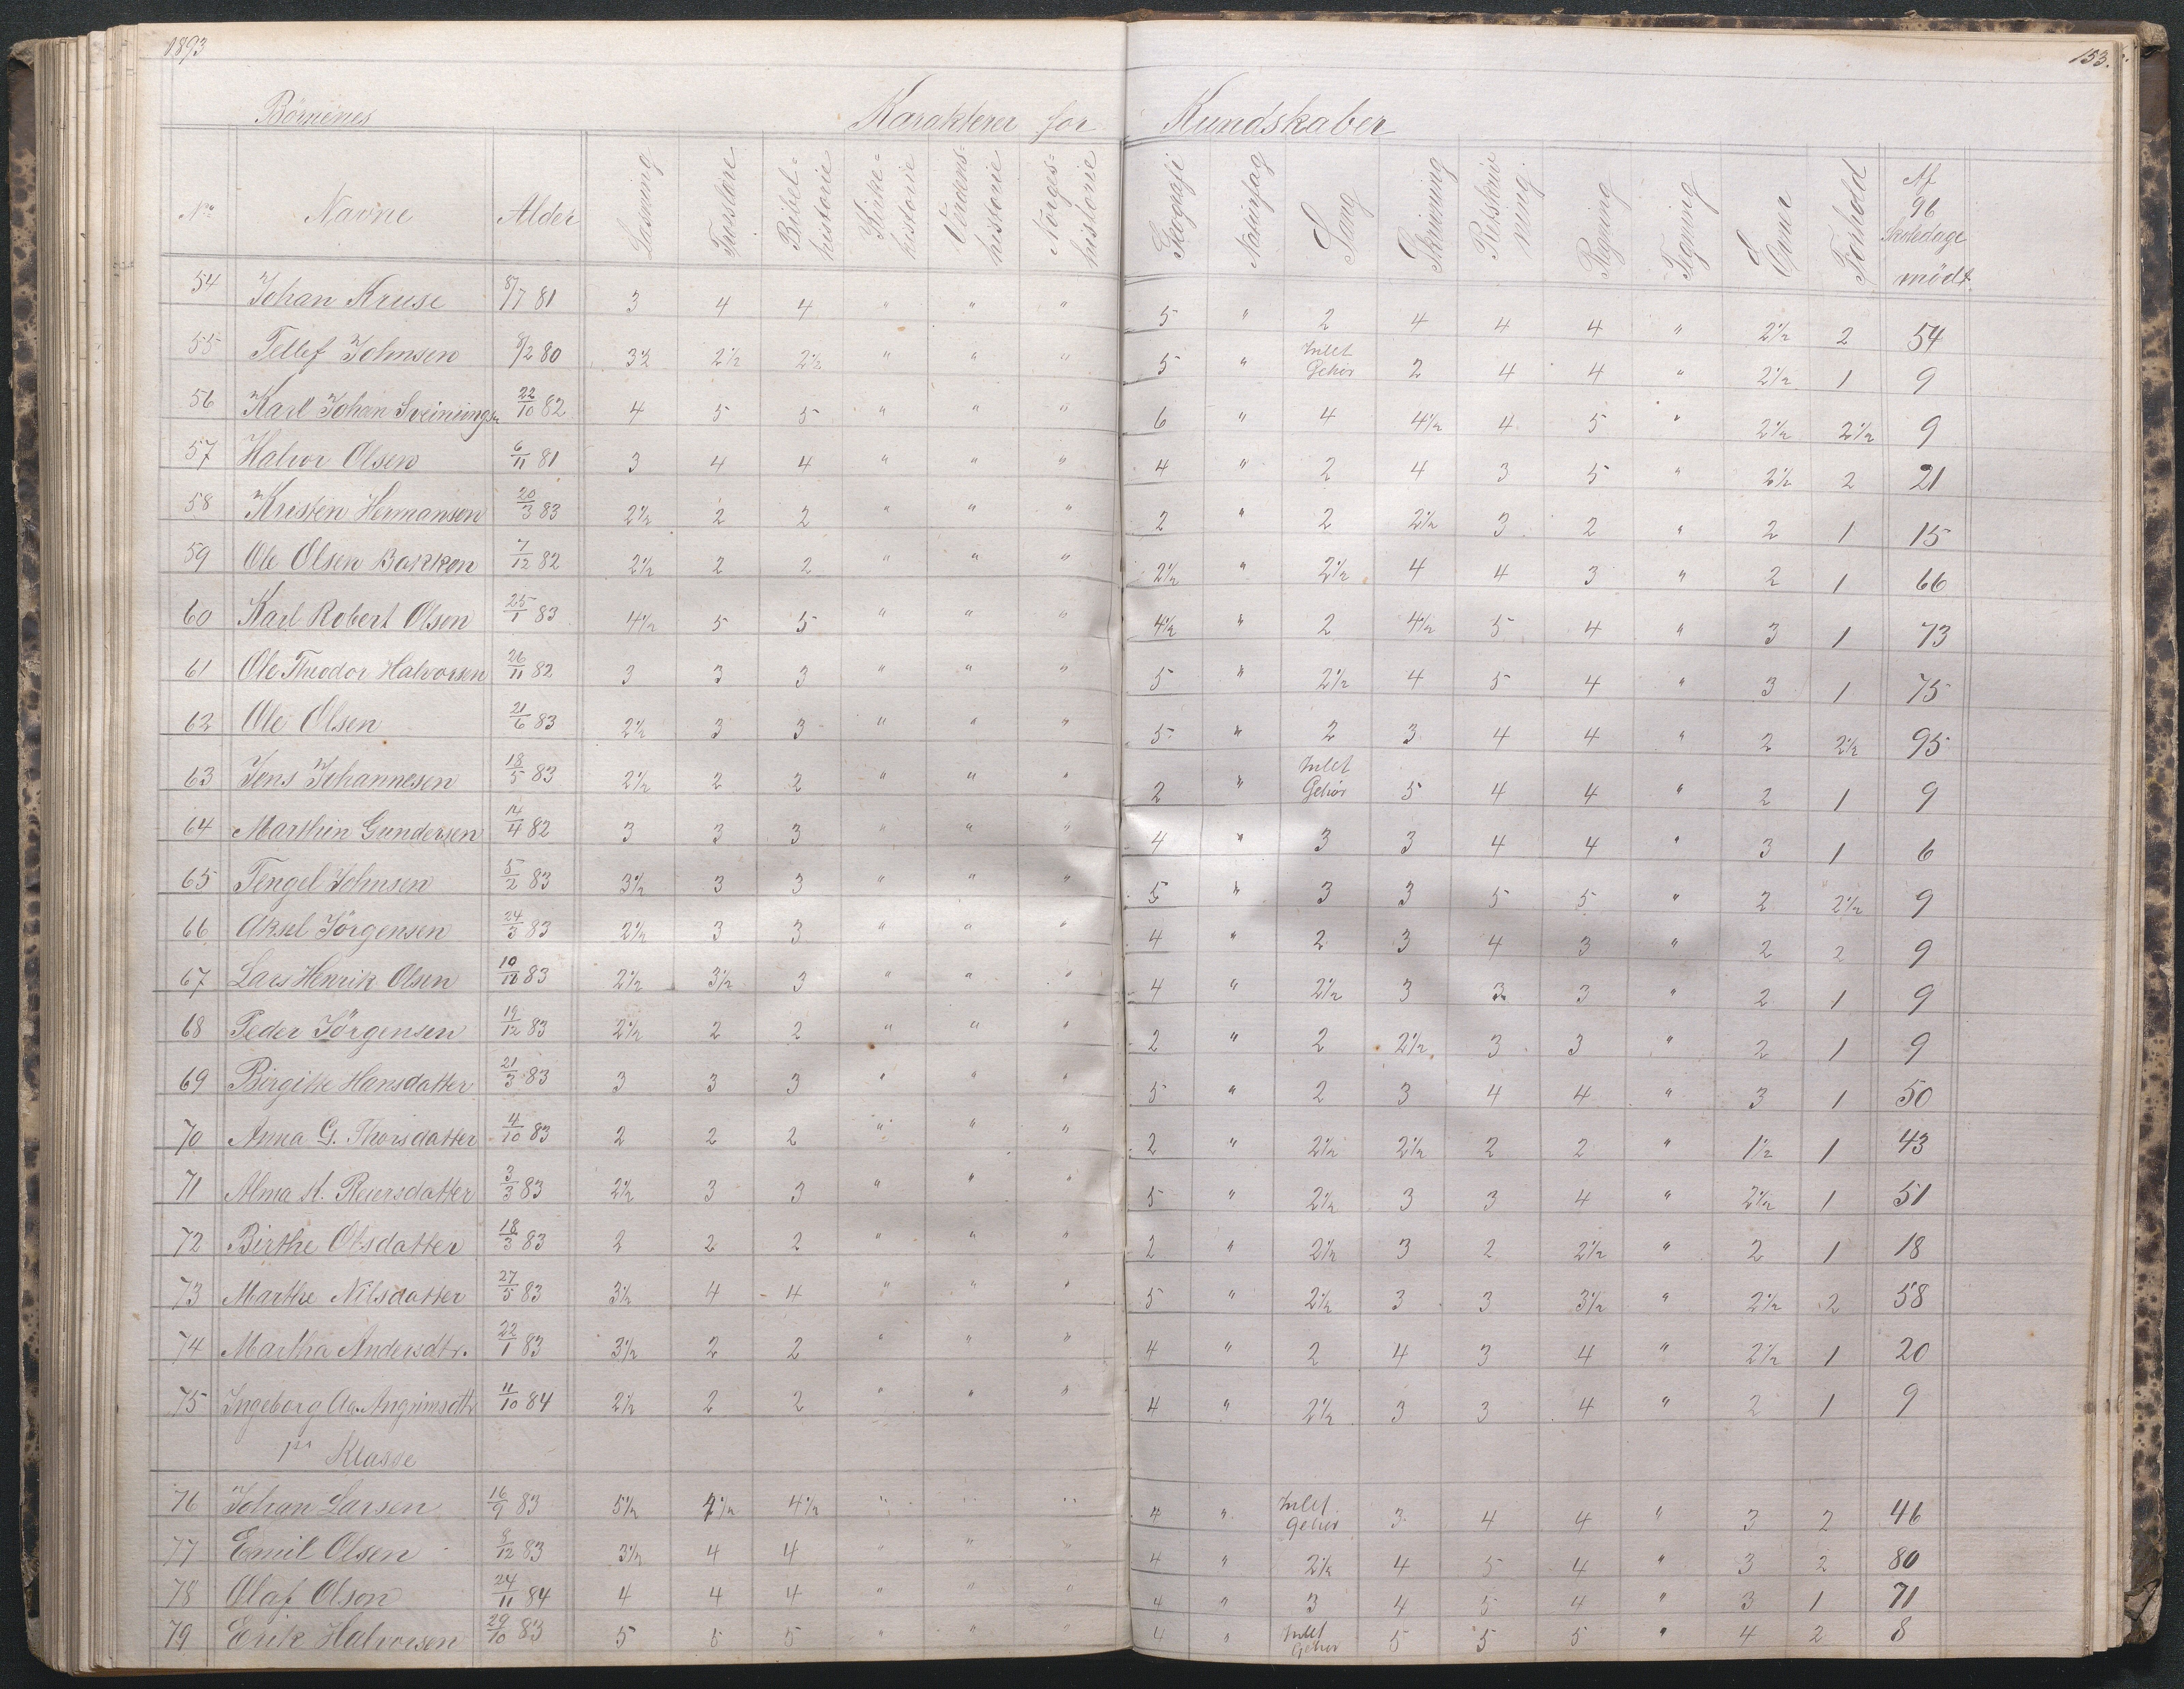 1893 153.
Börnenes Karakterer for Kundskaber
No Navne Alder Læsning Troeslære Bibel=historie Kirke=historie Verdens=historie Norges=historie Geografi Naturfag Sang Skrivning Retskrivning Regning Tegning Evner Forhold Af 96 Skoledage mödt.
54 Johan Kruse 8/7 81 3 4 4 " " " 5 " 2 4 4 4 " 2 1/2 2 54
55 Tellef Johnsen 8/2 80 3 1/2 2 1/2 2 1/2 " " " 5 " Intet Gehör 2 4 4 " 2 1/2 1 9
56 Karl Johan Sveinungs. 22/10 82 4 5 5 " " " 6 " 4 4 1/2 4 5 " 2 1/2 2 1/2 9
57 Halvor Olsen 6/11 81 3 4 4 " " " 4 " 2 4 3 5 " 2 1/2 2 21
58 Kristen Hermansen 20/3 83 2 1/2 2 2 " " " 2 " 2 2 1/2 3 2 " 2 1 15
59 Ole Olsen Bakken 7/12 82 2 1/2 2 2 " " " 2 1/2 " 2 1/2 4 4 3 " 2 1 66
60 Karl Robert Olsen 25/1 83 4 1/2 5 5 " " " 4 1/2 " 2 4 1/2 5 4 " 3 1 73
61 Ole Theodor Halvorsen 26/11 82 3 3 3 " " " 5 " 2 1/2 4 5 4 " 3 1 75
62 Ole Olsen 21/6 83 2 1/2 3 3 " " " 5 " 2 3 4 4 " 2 2 1/2 95
63 Jens Johannesen 18/5 83 2 1/2 2 2 " " " 2 " Intet Gehör 5 4 4 " 2 1 9
64 Marthin Gundersen 14/4 82 3 3 3 " " " 4 " 3 3 4 4 " 3 1 6
65 Tengel Johnsen 5/2 83 3 1/2 3 3 " " " 5 " 3 3 5 5 " 2 2 1/2 9
66 Aksel Jörgensen 24/3 83 2 1/2 3 3 " " " 4 " 2 3 4 3 " 2 2 9
67 Lars Henrik Olsen 83 2 1/2 3 1/2 3 " " " 4 " 2 1/2 3 3 3 " 2 1 9
68 Peder Jörgensen 19/12 83 2 1/2 2 2 " " " 2 " 2 2 1/2 3 3 " 2 1 9
69 Birgitte Hansdatter 21/3 83 3 3 3 " " " 5 " 2 3 4 4 " 3 1 50
70 Anna G. Thorsdatter 4/10 83 2 2 2 " " " 2 " 2 1/2 2 1/2 2 2 " 1 1/2 1 43
71 Alma A. Reiersdatter 3/3 83 2 1/2 3 3 " " " 5 " 2 1/2 3 3 4 " 2 1/2 1 51
72 Birthe Olsdatter 18/3 83 2 2 2 " " " 2 " 2 1/2 3 2 2 1/2 " 2 1 18
73 Marthe Nilsdatter 27/5 83 3 1/2 4 4 " " " 5 " 2 1/2 3 3 3 1/2 " 2 1/2 2 58
74 Martha Andersdtr. 22/1 83 3 1/2 2 2 " " " 4 " 2 4 3 4 " 2 1/2 1 20
75 Ingeborg Aa. Angrimsdtr 11/10 84 2 1/2 2 2 " " " 4 " 2 1/2 3 3 4 " 2 1 9
1ste Klasse
76 Johan Larsen 16/9 83 5 1/2 4 1/2 4 1/2 " " " 4 " Intet Gehör 3 4 4 " 3 2 46
77 Emil Olsen 8/12 83 3 1/2 4 4 " " " 4 " 2 1/2 4 5 4 " 3 2 80
78 Olaf Olson 24/11 84 4 4 4 " " " 4 " 3 4 5 4 " 3 1 71
79 Erik Halvorsen 29/10 83 5 5 5 " " " 4 " Intet Gehör 5 5 5 " 4 2 8